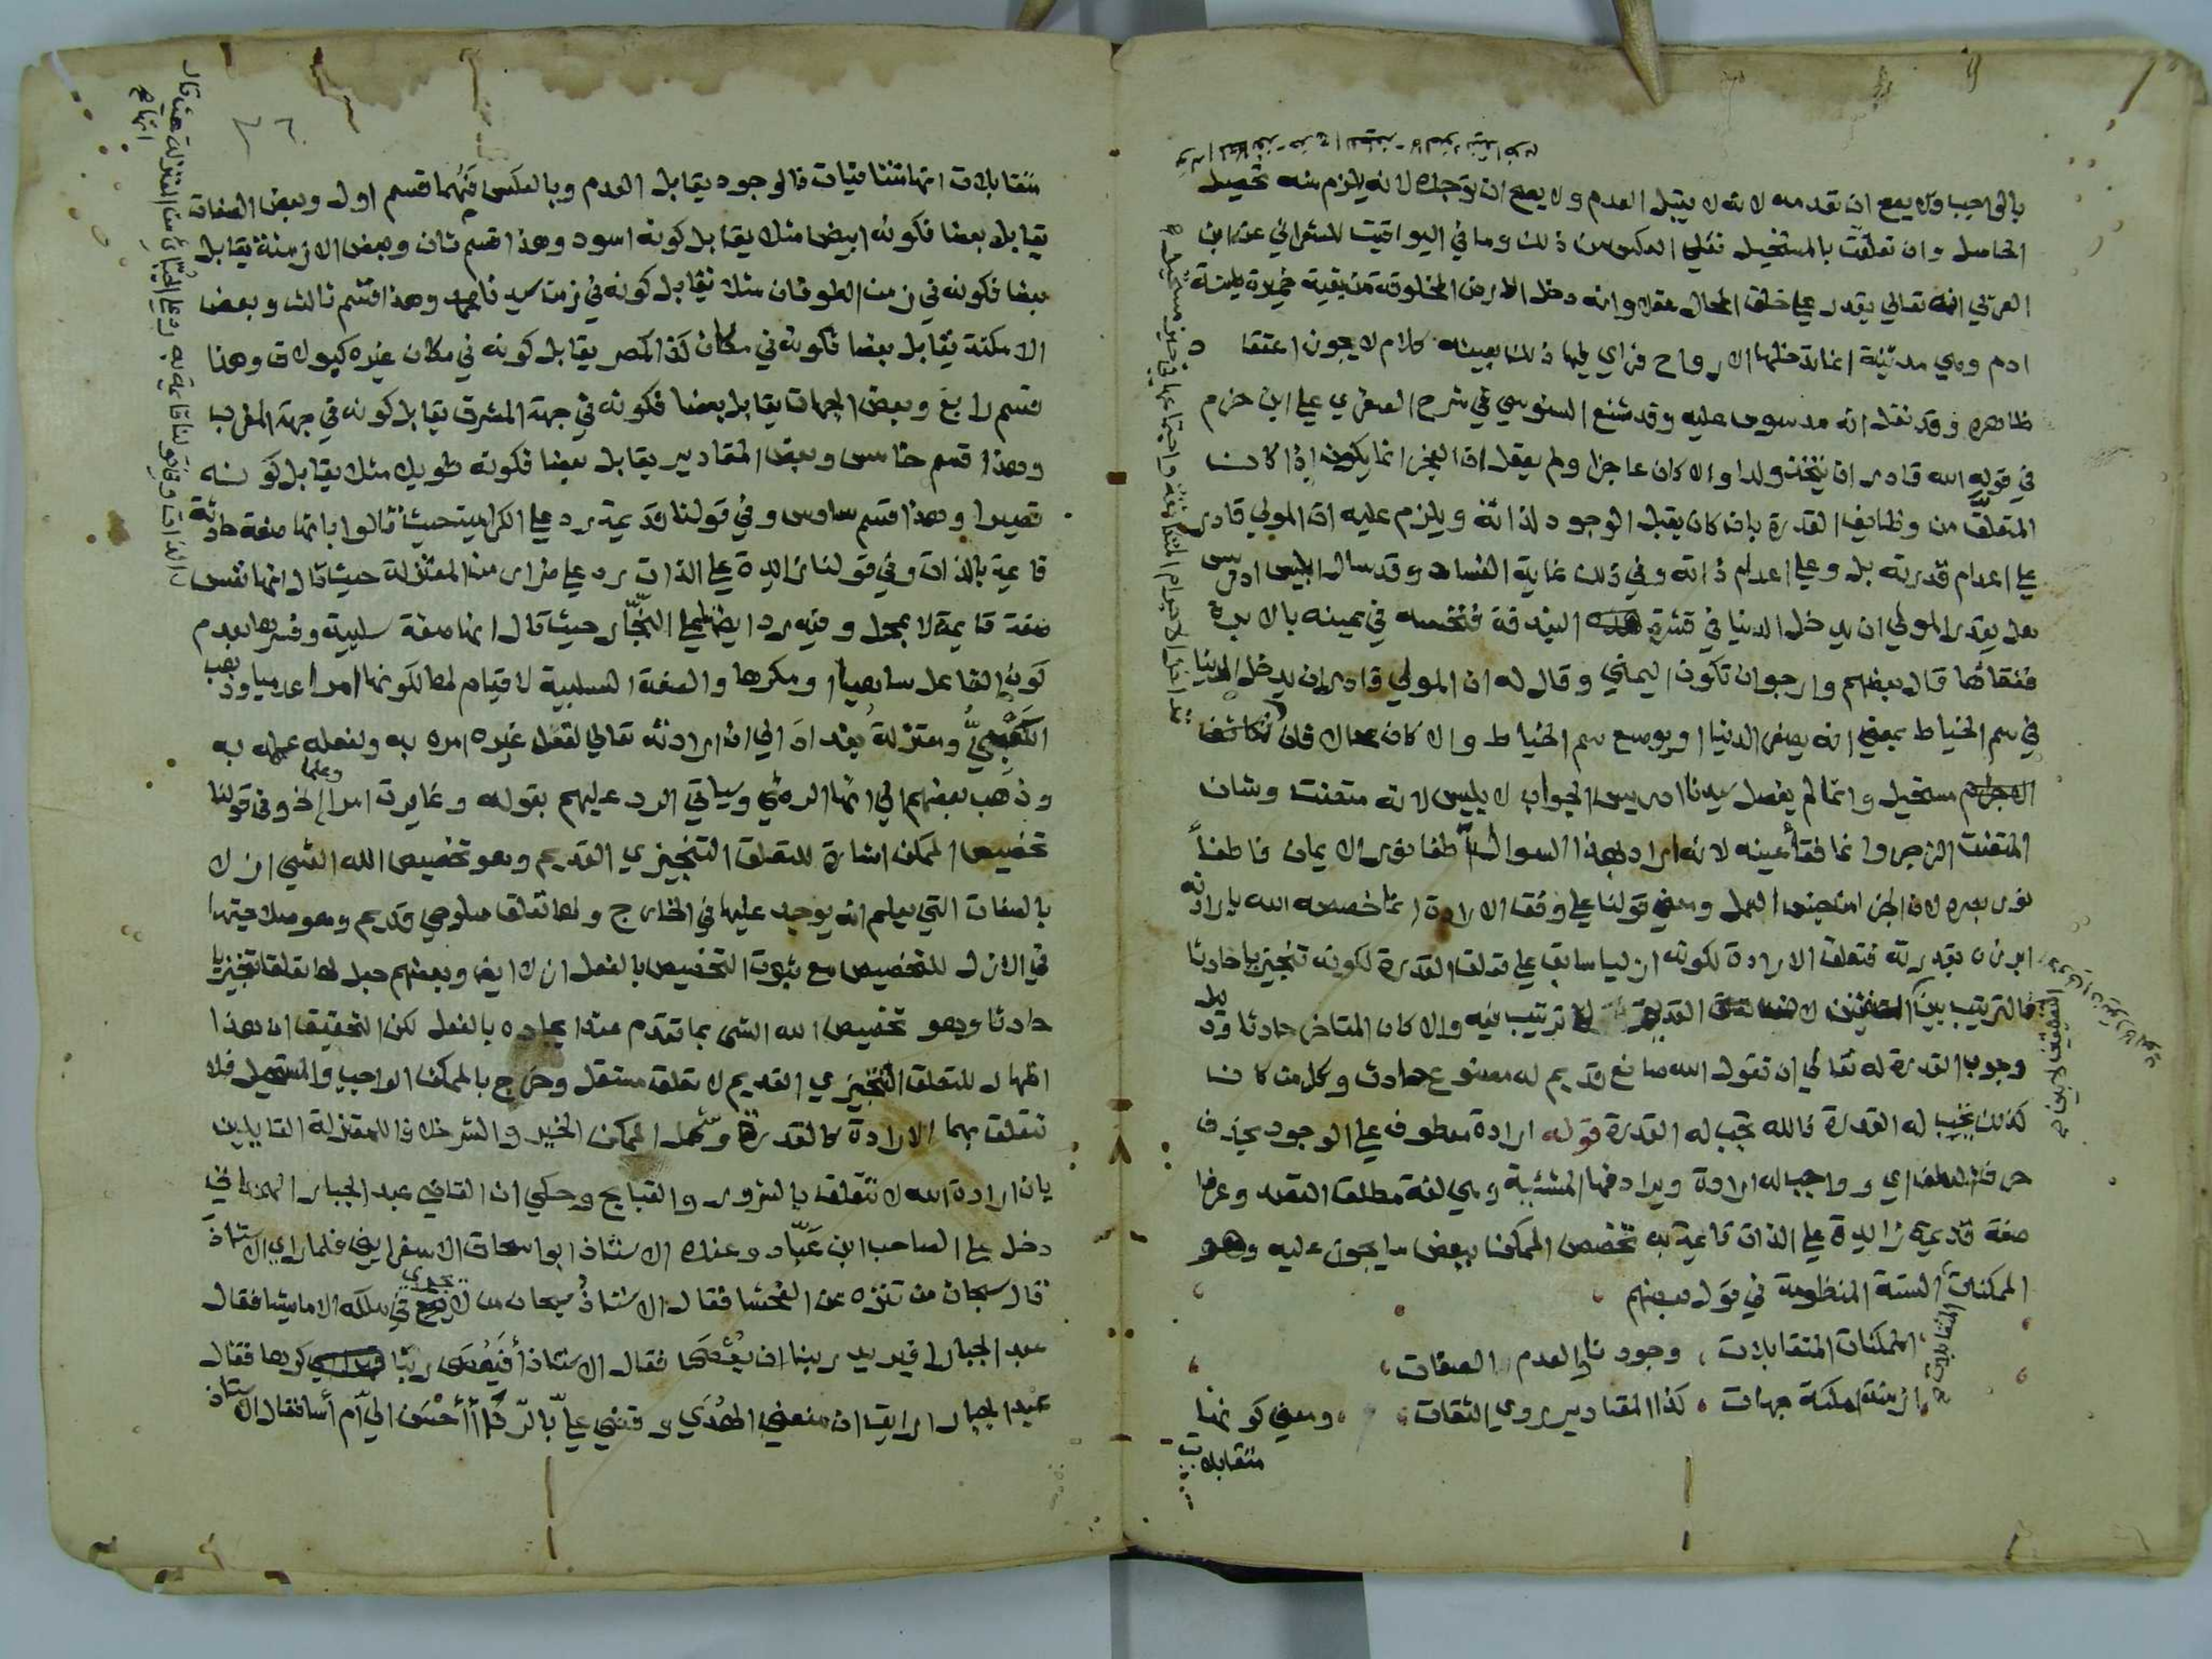 بالواجب ولا يصح ان تعدمه لانه لا يقبل العدم ولا يصح ان توجده لانه يلزم منه تحصيل
الحاصل وان تعلقت بالمستحيل فعلى العكس من ذلك وما في اليواقيت للشعراني عن ابن
العربي انه تعالى يقدر على خلق المحال عقلا وانه دخل الارض المخلوقة من بقية خميرة طينة
ادم وهي مدينة انما تدخلها الارواح فراي فيها ذلك بعينه كلام لا يجوز اعتقاد
ظاهره وقد نقل انه مدسوس عليه وقد شنع السنوسي في شرح الصغري علي ابن حزم
في قوله الله قادر ان يتخذ ولدا والا كان عاجزا ولم يعقل ان العجز انما يكون اذا كان
المتعلق من وظايف القدرة بان كان يقبل الوجود لذاته ويلزم عليه ان المولي قادر
علي اعدام قدرته بل وعلي اعدام ذاته وفي ذلك غاية الفساد وقد سال ابليس ادريس
هل يقدر المولي ان يدخل الدنيا في قشرة البندقة فنخسه في عينه بالابرة
ففقاها قال بعضهم وارجو ان تكون اليمني وقال له ان المولي قادر ان يدخل الدنيا
في سم الخياط بمعني انه يصغر الدنيا او يوسع سم الخياط والا كان محالا فان تكاثف
الاجرام مستحيل وانما لم يفصل سيدنا ادريس الجواب لابليس لانه متعنت وشان
المتعنت الزجر وانما فقأ عينه لانه اراد بهذا السوال اطفا نور الايمان فاطفأ
نور بصره لان الجزا من جنس العمل ومعني قولنا علي وفق الارادة انما خصصه الله بارادته
ابرزه بقدرته فتعلق الارادة لكونه ازليا سابق علي تعلق القدرة لكونه تنجيزيا حادثا
فالترتيب بين التعلقين لا ترتيب فيه والا كان المتاخر حادثا ودليل
وجوب القدرة له تعالي ان تقول الله صانع قديم له مصنوع حادث وكل من كان
كذلك تجب له القدرة فالله تجب له القدرة قوله ارادة معطوف علي الوجود بحذف
حرف العطف اي وواجب له ارادة ويرادفها المشيئة وهي لغة مطلق القصد وعرفا
صفة قديمة زايدة علي الذات قايمة به تخصص الممكن ببعض ما يجوز عليه وهو
الممكنات المتقابلات الستة المنظومة في قول بعضهم
الممكنات المتقابلات ، وجودنا والعدم الصفات ،
ازمنة امكنة جهات ، كذا المقادير روي الثقات ، ومعني كونها
متقابلات
متقابلات انها متنافيات فالوجود يقابل العدم وبالعكس فهما قسم اول وبعض الصفات
يقابل بعضا فكونه ابيض مثلا يقابل كونه اسود وهذا قسم ثان وبعض الازمنة يقابل
بعضا فكونه في زمن الطوفان مثلا يقابل كونه في زمن سيدنا محمد وهذا قسم ثالث وبعض
الامكنة يقابل بعضا فكونه في مكان كذا كمصر يقابل كونه في مكان غيره كبولاق وهذا
قسم رابع وبعض الجهات يقابل بعضا فكونه في جهة المشرق يقابل كونه في جهة المغرب
وهذا قسم خامس وبعض المقادير يقابل بعضا فكونه طويلا مثلا يقابل كونه
قصيرا وهذا قسم سادس وفي قولنا قديمة رد علي الكرامية حيث قالوا بانها صفة حادثة
قايمة بالذات وفي قولنا زايدة علي الذات رد علي ضرار من المعتزلة حيث قال انها نفس الذات وفي قولنا قايمة به رد علي الجبائي من المعتزلة حيث قال انها
صفة قايمة لا بمحل وفيه رد ايضا علي النجار حيث قال انها صفة سلبية وفسرها بعدم
كون الفاعل ساهيا او مكرها والصفة السلبية لا قيام لها لكونها امرا عدميا وذهب
الكعبي ومعتزلة بغداد الي ان ارادته تعالي لفعل غيره امره به ولفعله علمه به
وذهب بعضهم الي انها الرضي وسياتي الرد عليهم بقوله وغايرت امرا وعلما الخ وفي قولنا
تخصيص الممكن اشارة للتعلق التنجيزي القديم وهو تخصيص الله الشي ازلا
بالصفات التي يعلم انه يوجد عليها في الخارج ولها تعلق صلوحي قديم وهو صلاحيتها
في الازل للتخصيص مع ثبوت التخصيص بالفعل ازلا ايضا وبعضهم جعل لها تعلقا تنجيزيا
حادثا وهو تخصيص الله الشي بما تقدم عند ايجاده بالفعل لكن التحقيق ان هذا
اظهار للتعلق التنجيزي القديم لا تعلق مستقل وخرج بالممكن الواجب والمستحيل فلا
تتعلق بهما الارادة كالقدرة وشمل الممكن الخير والشر خلافا للمعتزلة القايلين
بان ارادة الله لا تتعلق بالشرور والقبايح وحكي ان القاضي عبد الجبار الهمداني
دخل علي الصاحب ابن عباد وعنده الاستاذ ابو اسحاق الاسفرايني فلما راي الاستاذ
قال سبحان من تنزه عن الفحشا فقال الاستاذ سبحان من لا يجري في ملكه الا ما يشا فقال
عبد الجبار افيريد ربنا ان يُعْصَى فقال الاستاذ أفَيُعْصَى ربنا كرها فقال
عبد الجبار ارايت ان منعني الهُدَي وقضي عليّ بالردَي أأحْسَن اليّ أم أسا فقال الاستاذ